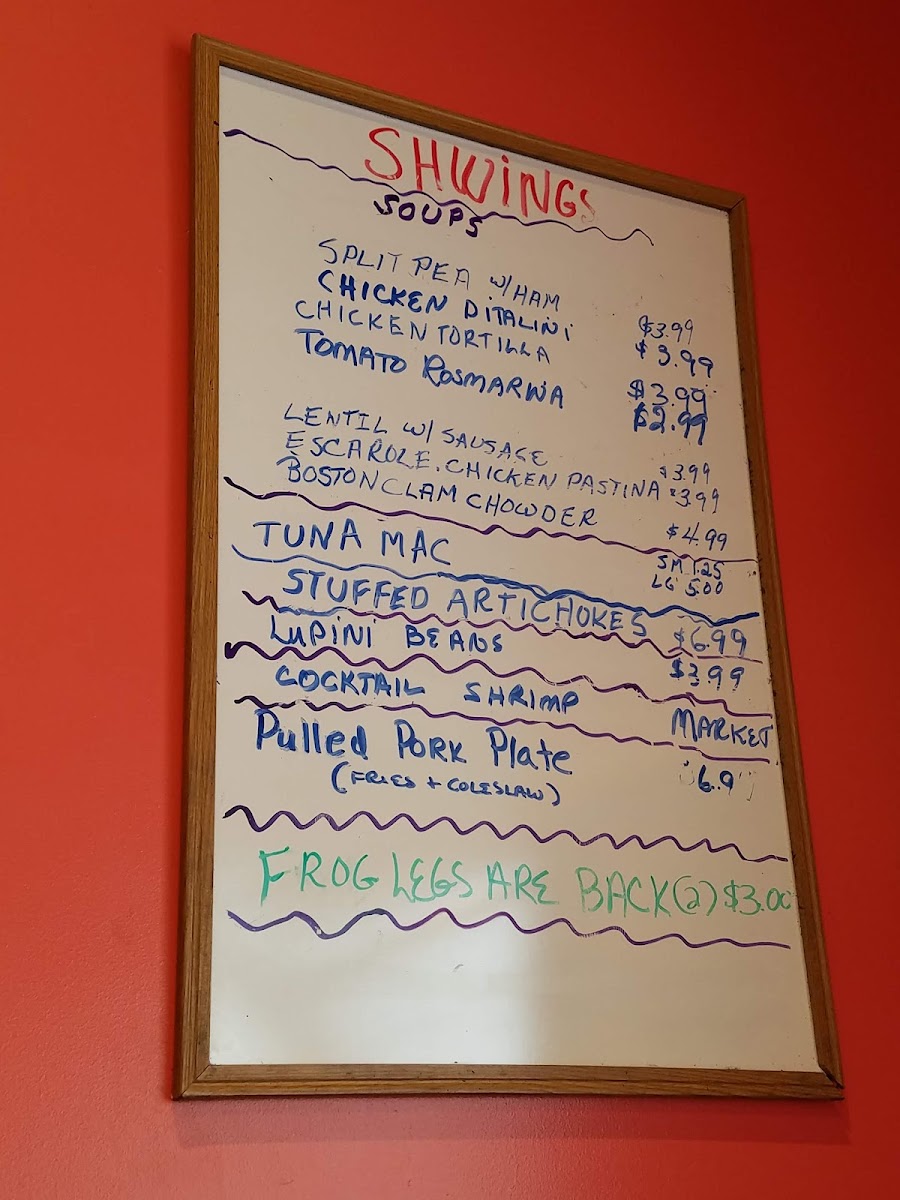 SHWINGS
SOUPS
SPLIT PEA W/HAM $3.99
CHICKEN DITALINI $3.99
CHICKEN TORTILLA $3.99
TOMATO ROSMARINA $2.99
LENTIL W/ SAUSAGE $3.99
ESCAROLE. CHICKEN PASTINA $3.99
BOSTON CLAM CHOWDER $4.99
TUNA MAC SM 1.25
LG 5.00
STUFFED ARTICHOKES $6.99
LUPINI BEANS $3.99
COCKTAIL SHRIMP MARKET
Pulled PORK Plate
(FRIES + COLESLAW)
FROG LEGS ARE BACK (2) $3.00